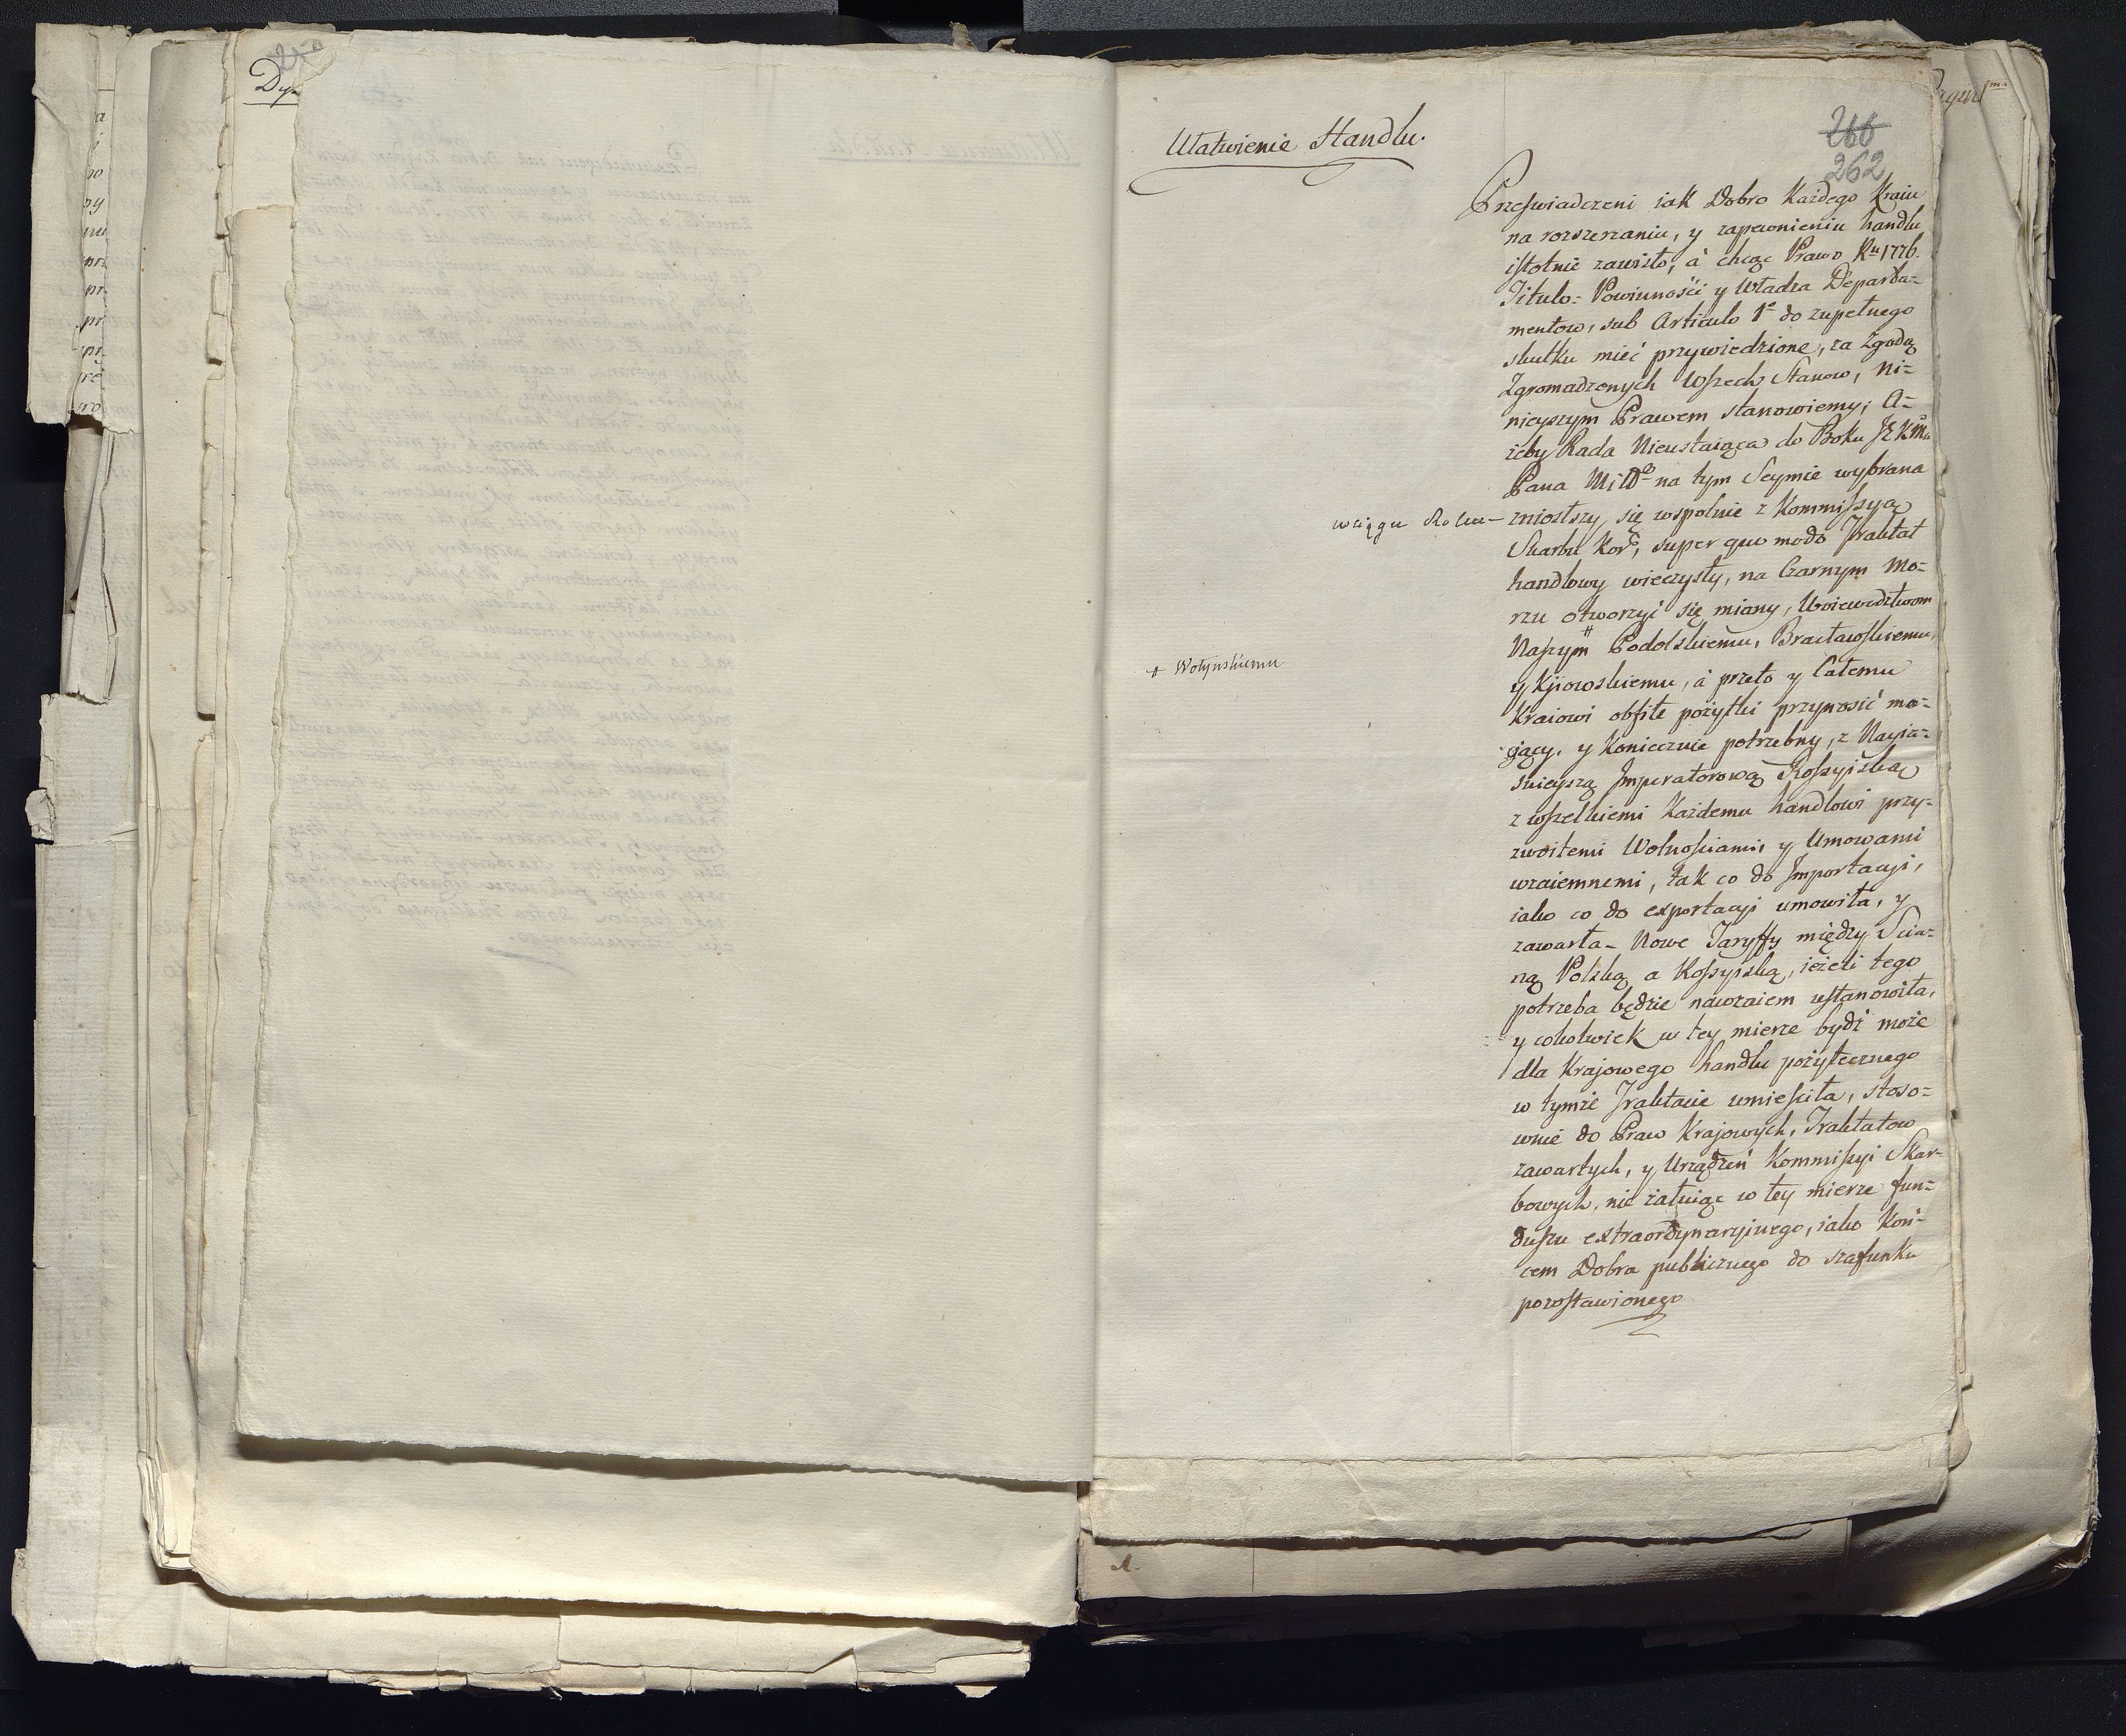 Ułatwienie Handlu.
266
262
Przeswiadczeni iak Dobro Każdego Kraiu
na rozszerzaniu, y zapewnieniu handlu
istotnie zawisło, à chcąc Prawo Ru 1776.
Titulo: Powinności y Władza Departa=
mentow, sub Articulo 1o do zupełnego
skutku mieć przywiedzione, za Zgodą
Zgromadzonych Wszech Stanow, ni=
nieyszym Prawem stanowiemy; A=
żeby Rada Nieustaiąca do Boku JKMci
Pana MiłGo na tym Seymie wybrana
w ciągu Roku - zniosłszy się wspolnie z Kommissyą
Skarbu Kor, super quo modo Traktat
handlowy wieczysty, na Czarnym Mo=
rzu otworzyć się miany, Woiewodztwom
Naszym # Podolskiemu, Bracławskiemu,
+ Wołynskiemu
y Kjiowskiemu, à przeto y Całemu
Kraiowi obfite pożytki przynosić ma=
jący, y Koniecznie potrzebny, z Nayia=
snieyszą Imperatorową Rossyiską
z wszelkiemi Każdemu handlowi przy=
zwoitemi Wolnościami, y Umowami
wzaiemnemi, tak co do Importacyi,
iako co do exportacyi umowiła, y
zawarła - Nowe Taryffy między Scia=
ną Polską a Rossyiską, ieżeli tego
potrzeba będzie nawzaiem ustanowiła,
y cokolwiek w tey mierze bydź może
dla Krajowego handlu pożytecznego
w tymże Traktacie umieściła, stoso=
wnie do Praw Krajowych, Traktatow
zawartych, y Urządzeń Kommissyi Skar=
bowych, nie żałuiąc w tey mierze fun=
duszu extraordynaryinego, iako Koń=
cem Dobra publicznego do szafunku
pozostawionego